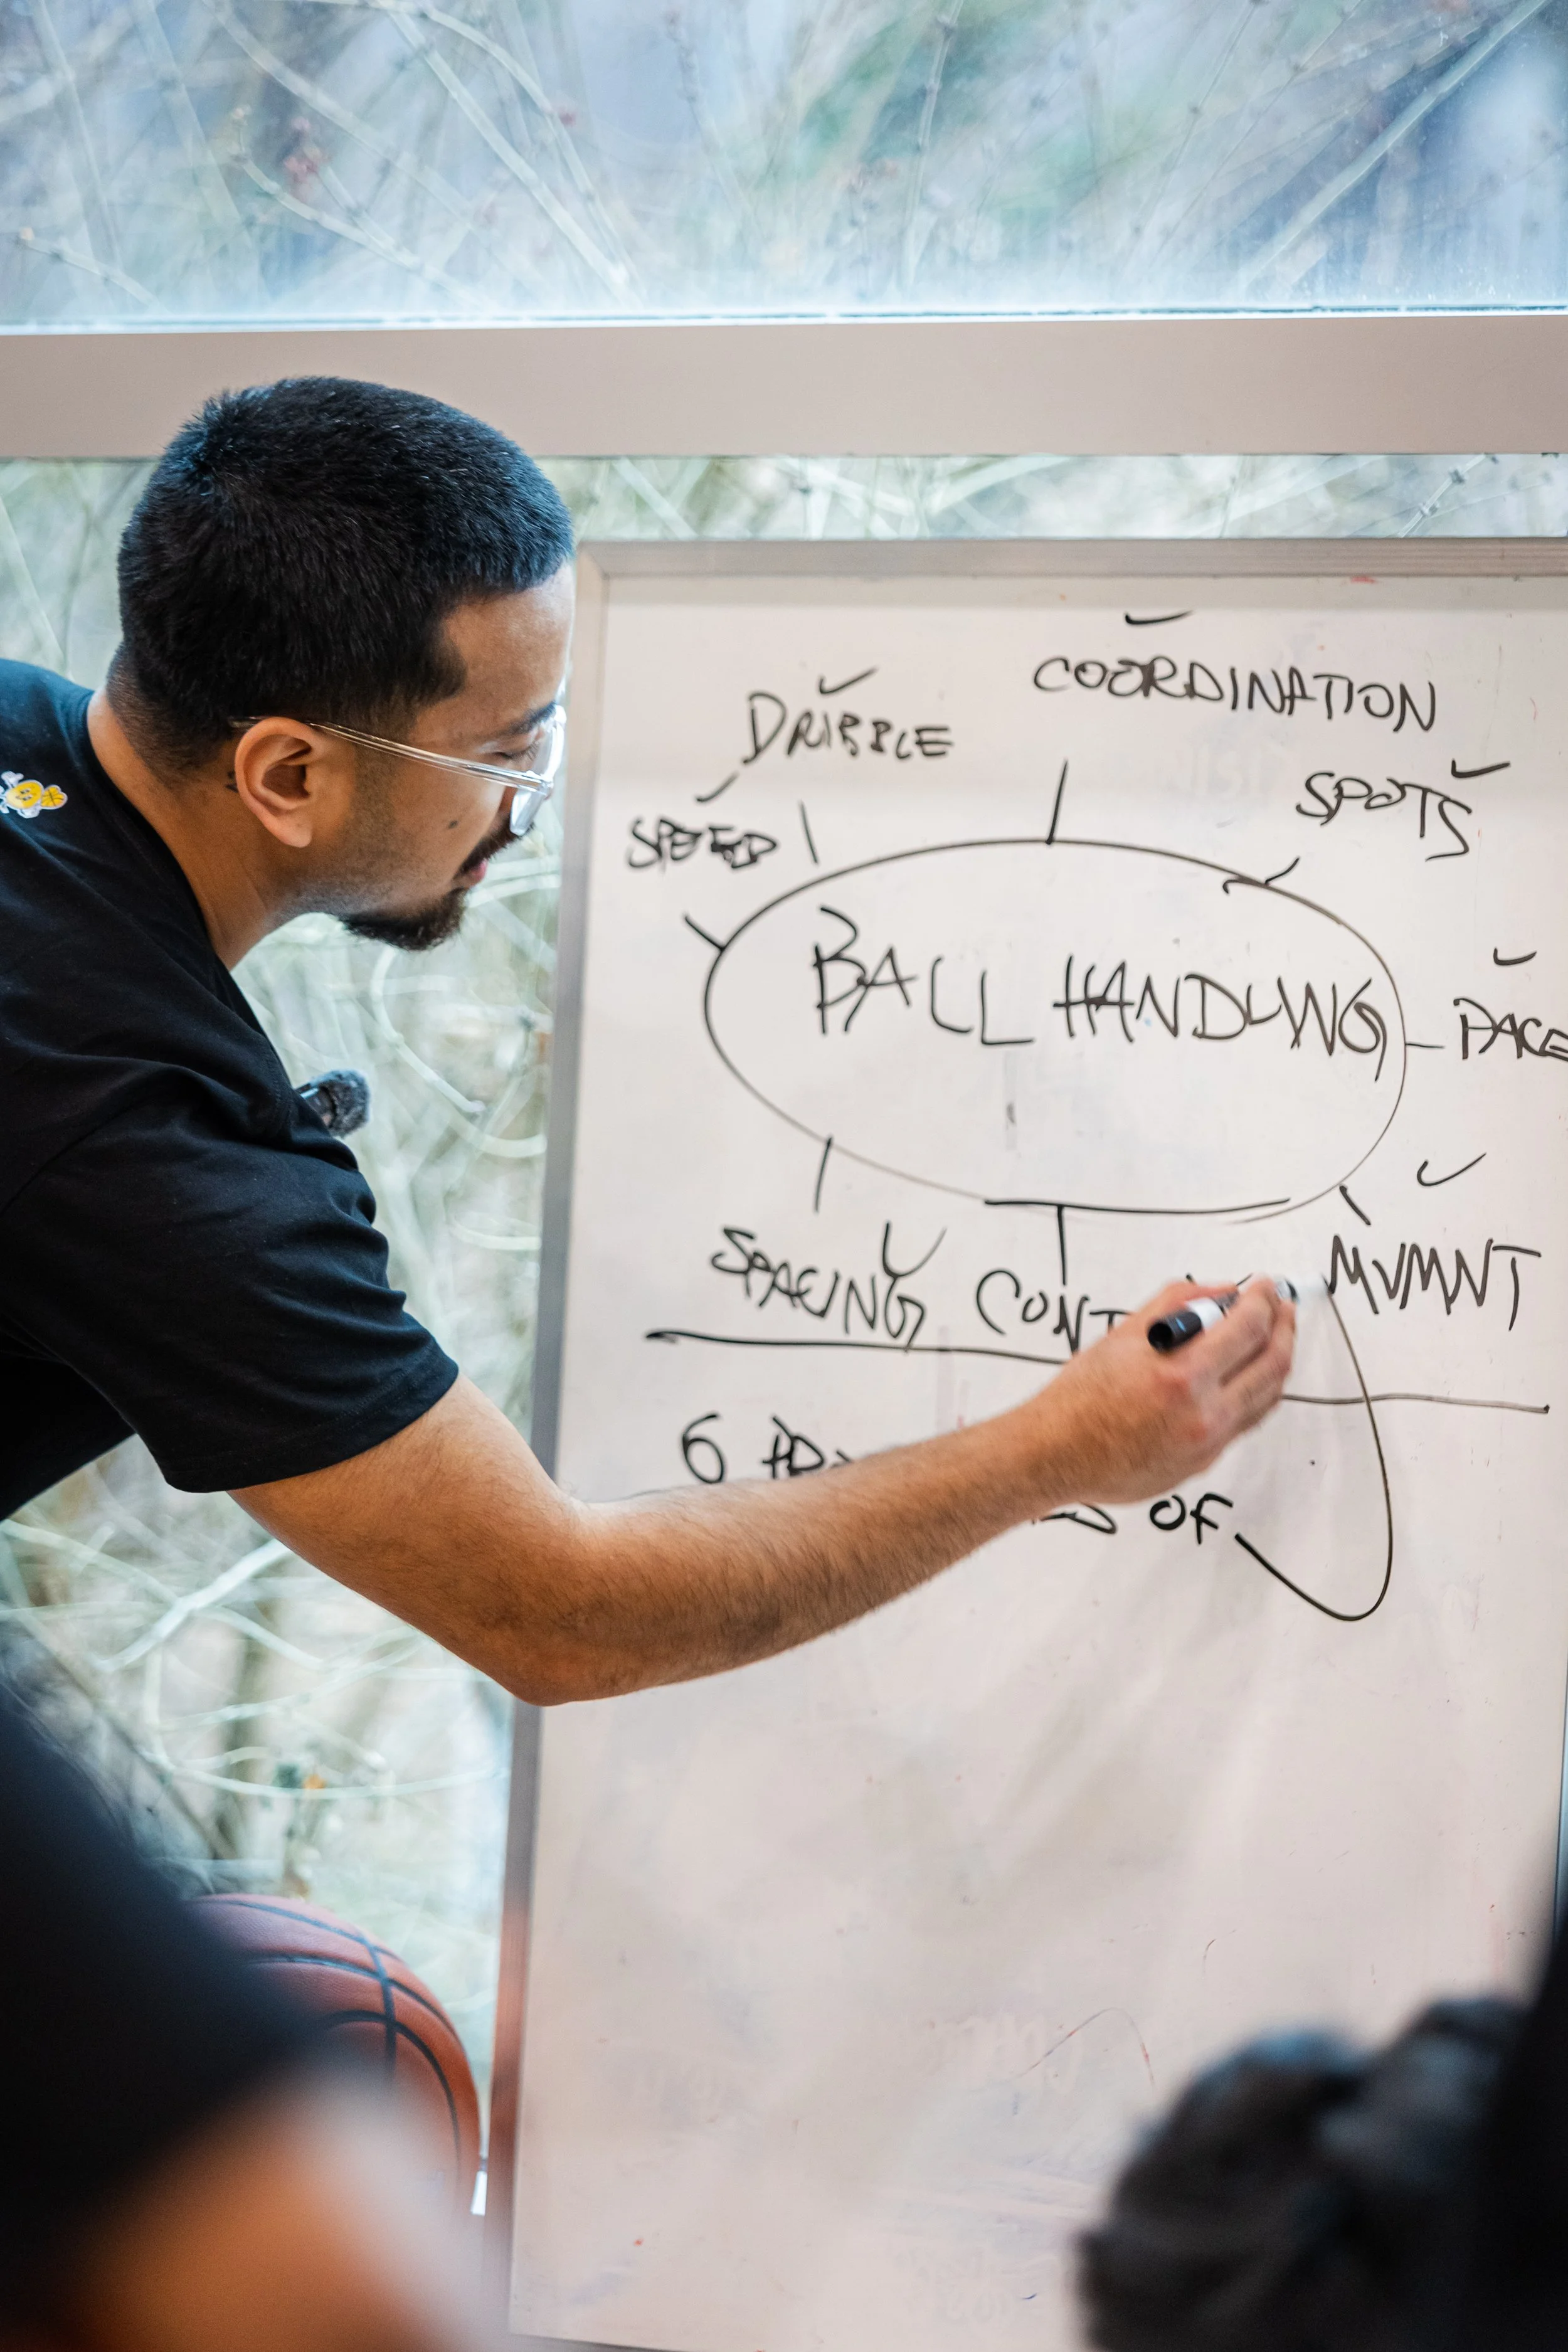 COORDINATION
DRIBBLE
SPOTS
SPEED
BALL HANDLING
PACE
SPACING
MVMNT
6
OF